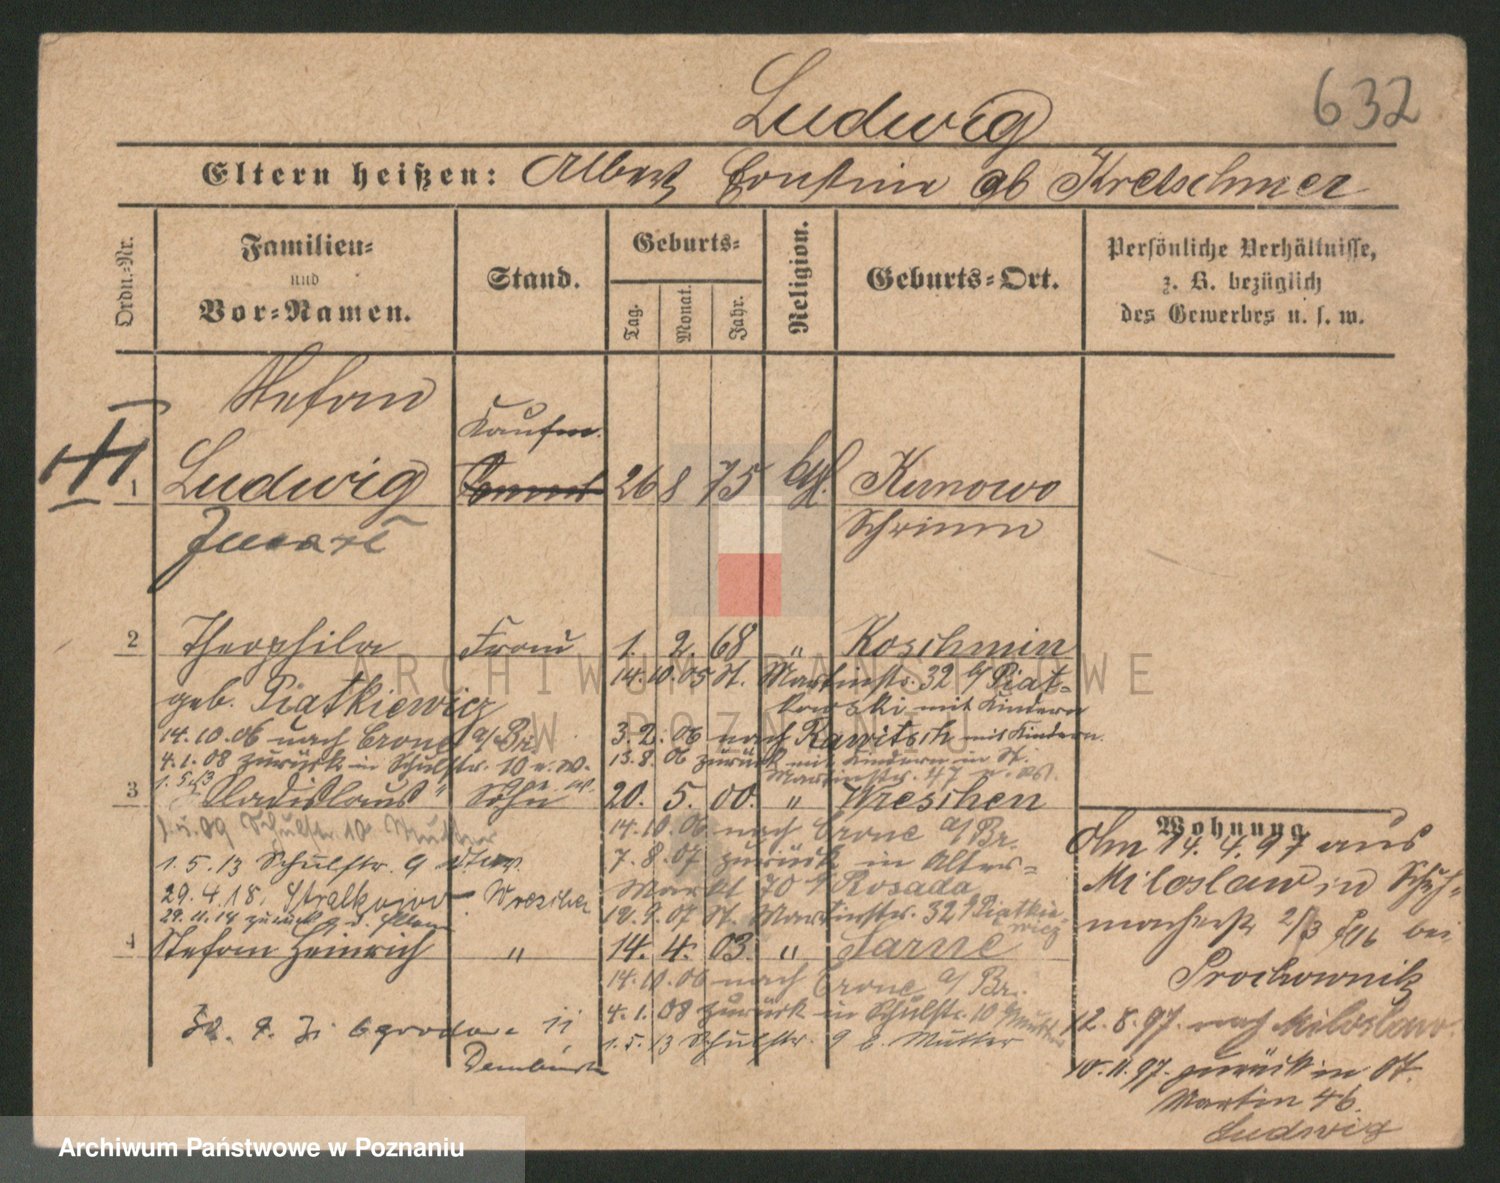 Ludwig
632
Eltern heißen: Albert Ernstine gb Kretschmer
Ordn.-Nr.
Familien-
und
Vor-Namen.
Stand.
Geburts-
Tag.
Monat.
Jahr.
Religion.
Geburts-Ort.
Persönliche Verhältnisse,
z. B. bezüglich
des Gewerbes u. s. w.
Stefan
Kaufm.
1 Ludwig 26 8 75 kath. Kunowo
Schrimm
2 Theophila Frau 1. 2. 68 " Koschmin
geb. Piatkiewicz
14.10.05 St. Martinstr. 32 b/ Piat-
kowski mit Kindern
14.10.06 nach Crone a/Br.
3.2.06 nach Rawitsch mit Kindern.
4.1.08 zurück in Schulstr. 10 u. W.
13.8.06 zurück mit Kindern in St.
Martinstr. 47
1.5.13 " 9 W.
3 Vladislaus Sohn 20. 5. 00. " Wreschen
Schulstr. 10 Mutter
14.10.06 nach Crone a/Br.
1.5.13 Schulstr. 9
7.8.07 zurück in Alter-
Markt 70 b/ Rosada
29.4.18. Strzalkowo Wreschen
29.11.18 zurück
St. Martinstr. 32 b/ Piatkie-
wicz
4 Stefan Heinrich " 14. 4. 03. " Sarne
14.10.06 nach Crone a/Br.
4.1.08 zurück in Schulstr. 10 b/ Mutter
1.5.13 Schulstr. 9 b. Mutter
Dembsen
Wohnung
Ohm 14.4.97 aus
Miloslaw in Schuh-
macherstr. 2/3 bei
Prochownik
12.8.97. nach Miloslaw.
10.11.97. zurück in St.
Martin 46.
Ludwig
ARCHIWUM PAŃSTWOWE
W POZNANIU
Archiwum Państwowe w Poznaniu